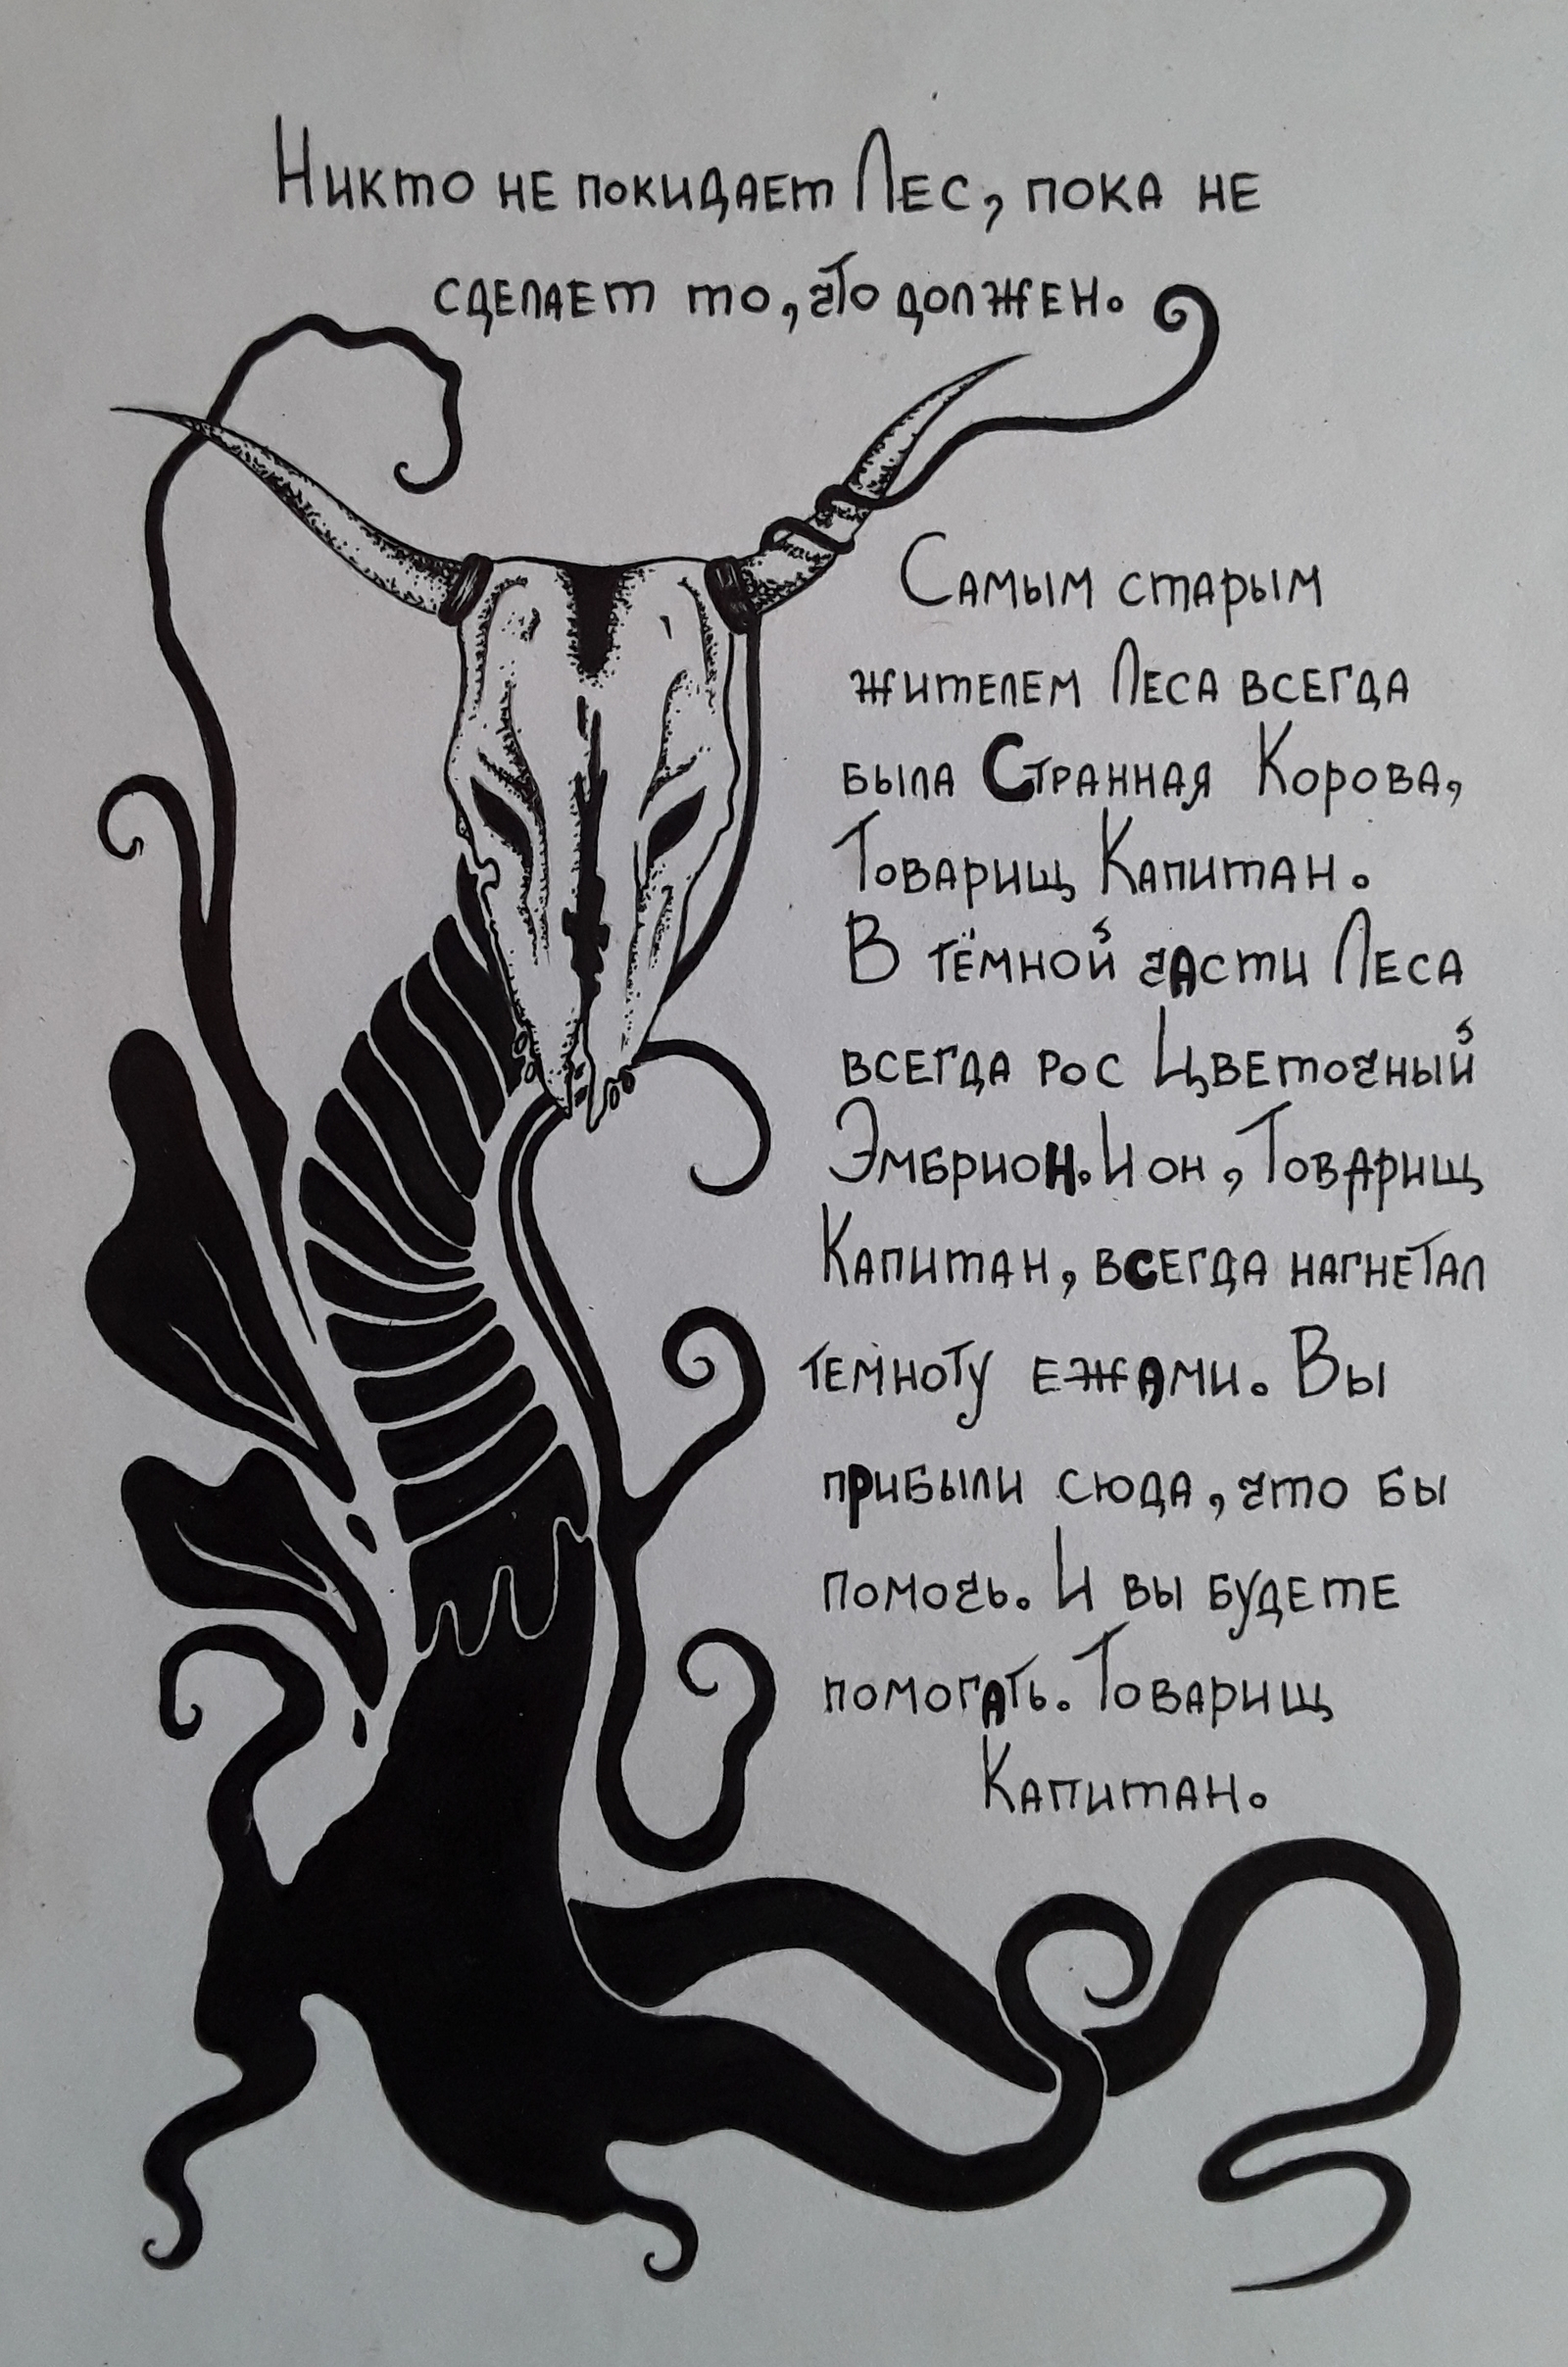 Никто не покидает Лес, пока не
сделает то, что должен.
Самым старым
жителем Леса всегда
была Странная Корова,
Товарищ Капитан.
В тёмной части Леса
всегда рос Цветочный
Эмбрион. И он, Товарищ
Капитан, всегда нагнетал
темноту ежами. Вы
прибыли сюда, что бы
помочь. И вы будете
помогать. Товарищ
Капитан.